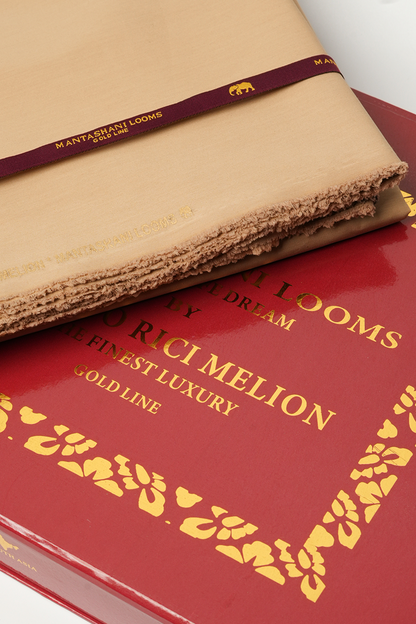 MANTASHANI LOOMS
GOLD LINE
MA
LOOMS
DREAM
BY
RICI MELION
FINEST LUXURY
GOLD LINE
ASIA